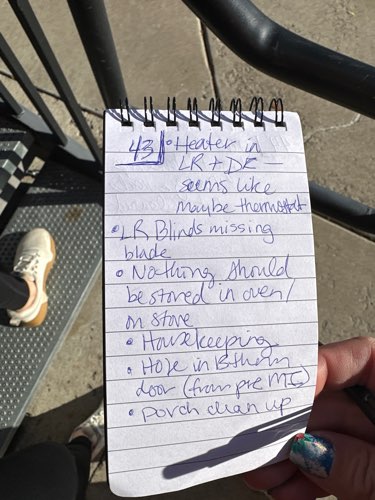 43 • Heater in
LR + DR —
seems like
maybe thermostat
• LR Blinds missing
blade
• Nothing should
be stored in oven/
on stove
• Housekeeping
• Hole in Bthrm
door (from pre MI)
• porch clean up